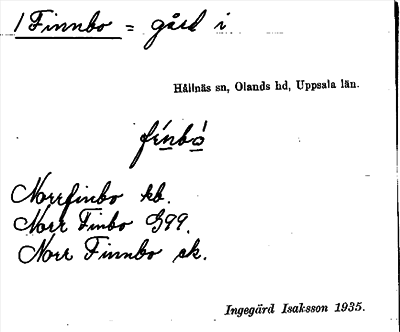 1 Finnbo = gård i
Hållnäs sn, Olands hd, Uppsala län.
fínbó
Norrfinbo kb.
Norr Finbo G99.
Norr Finnbo ek.
Ingegärd Isaksson 1935.